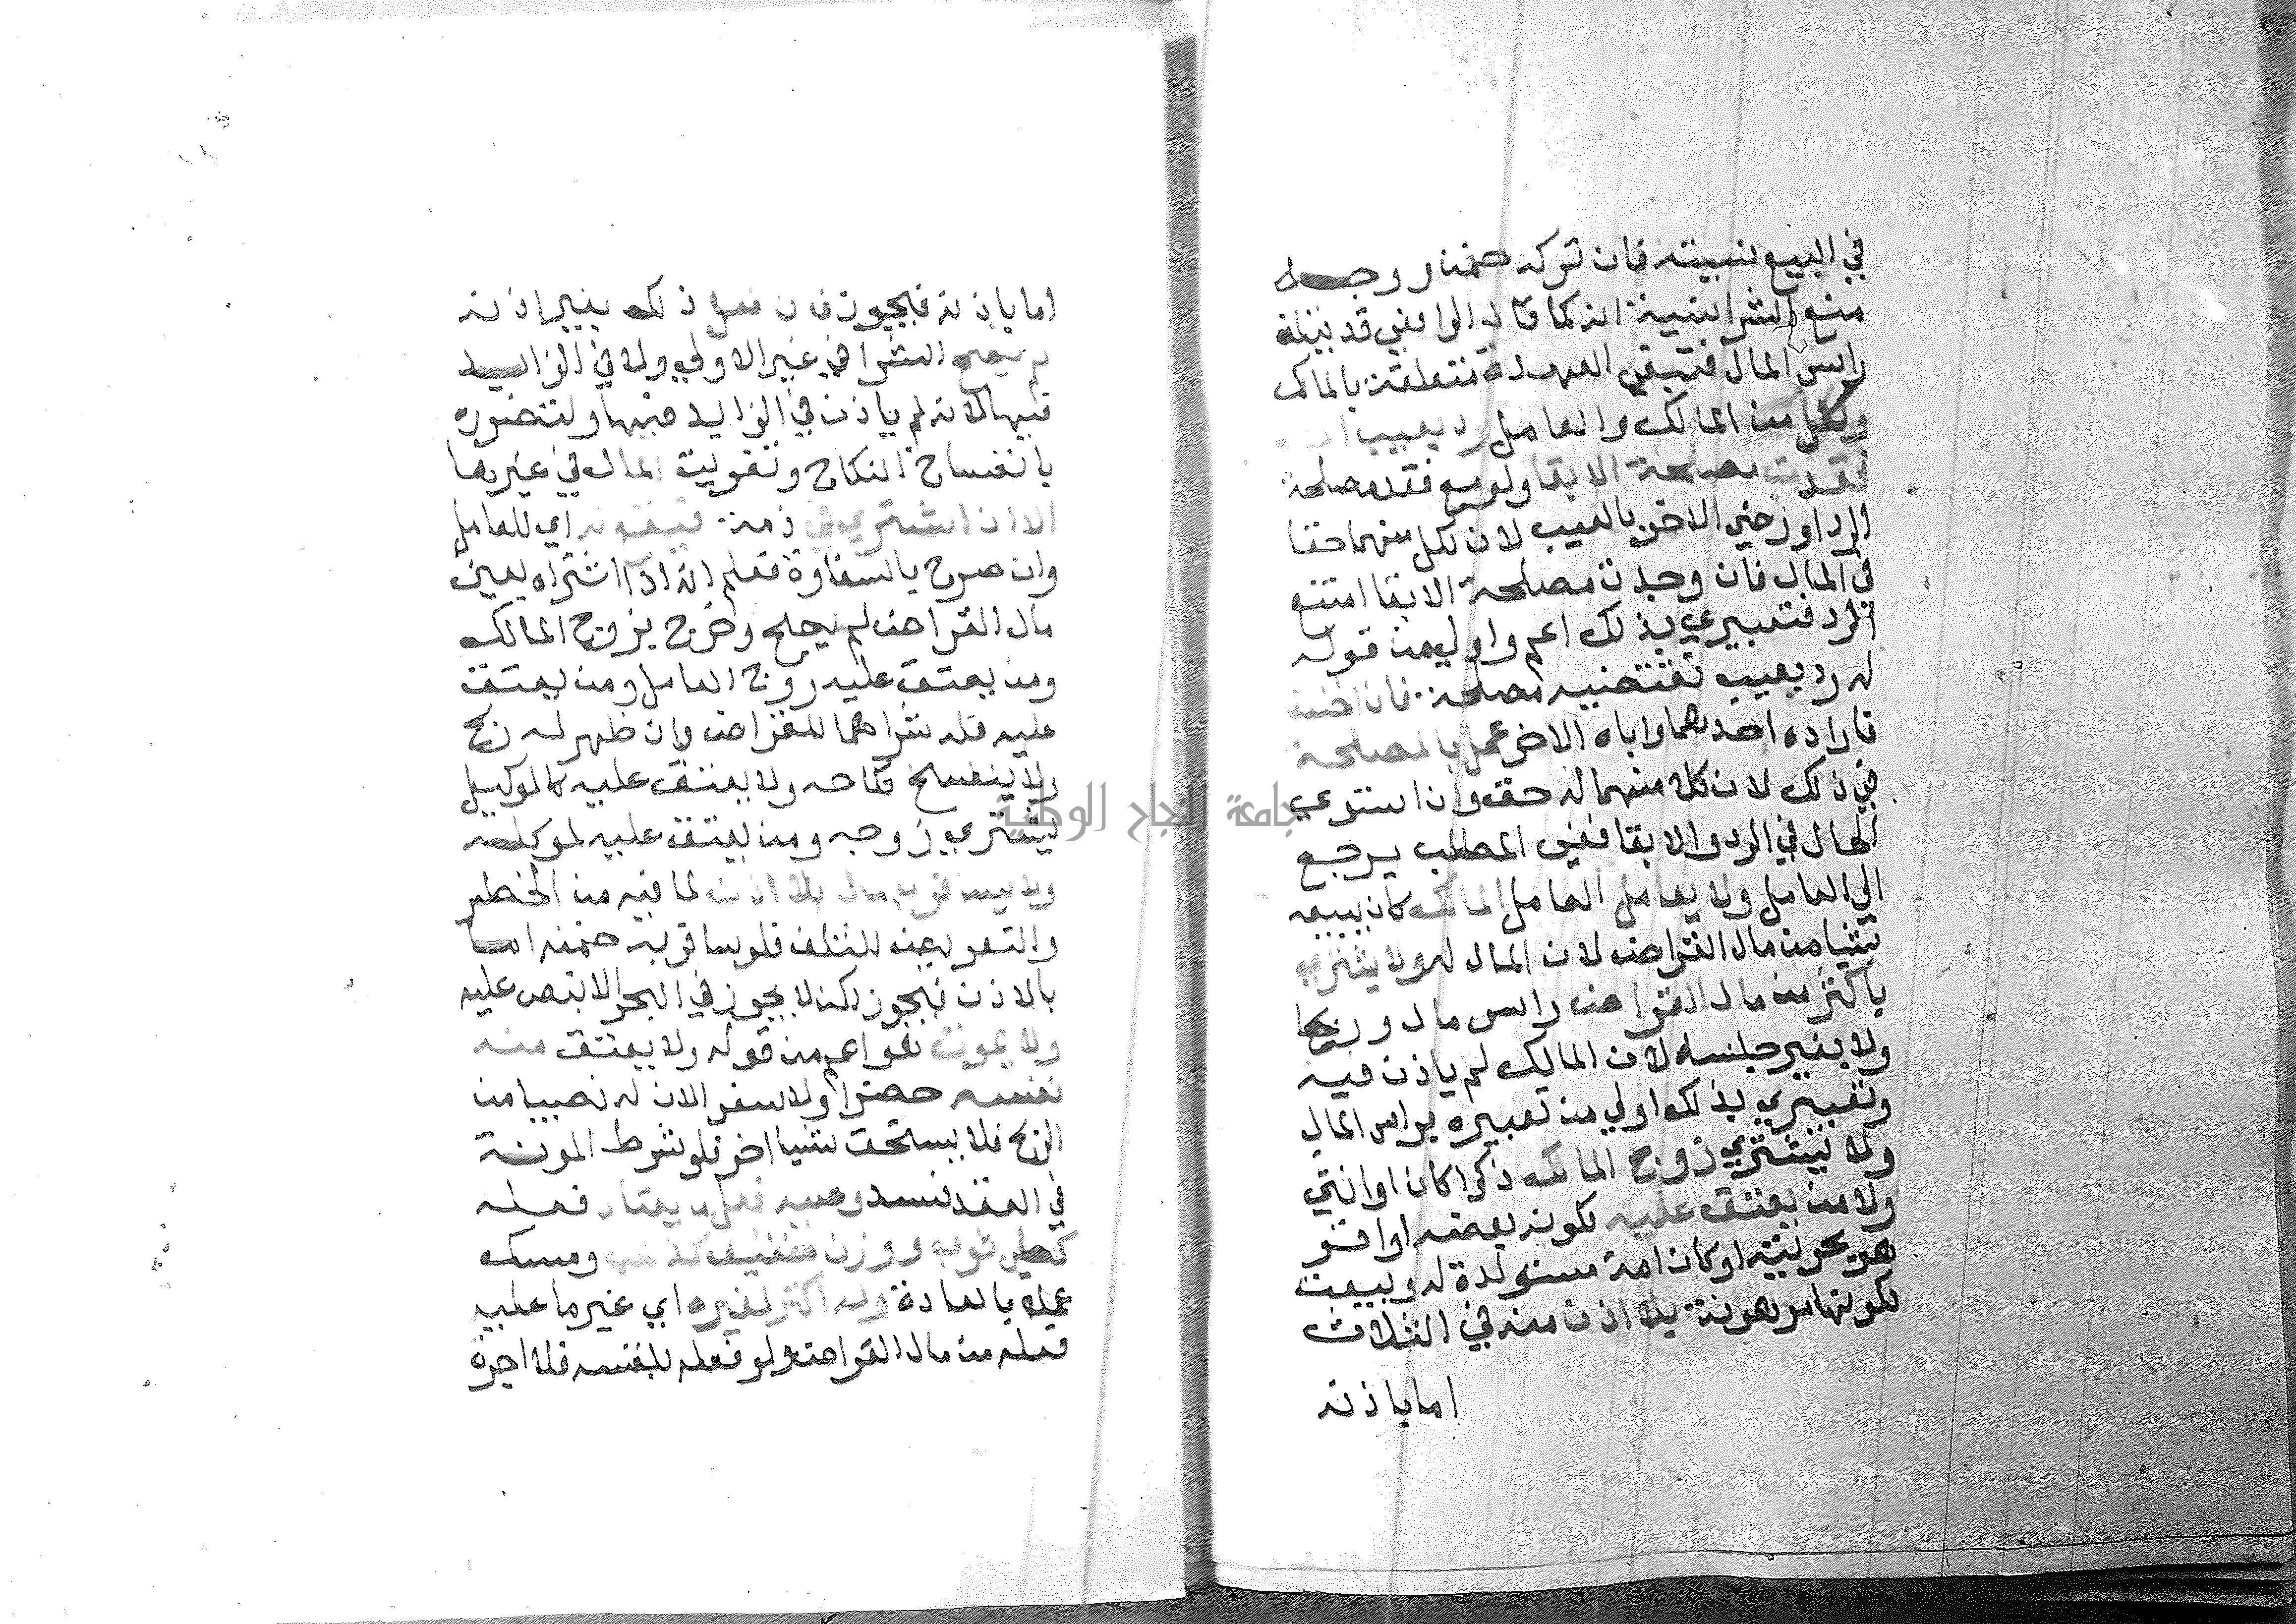 في البيع نسيئة فان تركه ضمن ووجه
منع الشرا نسيئة انه كما قال الرافعي قد يتلف
راس المال فتبقى العهدة متعلقة بالمالك
ولكل من المالك والعامل رد بعيب ان
فقدت مصلحة الابقا ولو مع فقد مصلحة
الرد او رضي الاخر بالعيب لان لكل منهما حقا
في المال فان وجدت مصلحة الابقا امتنع
الرد فتعبيري بذلك اعم واولى من قوله
له رد بعيب تقتضيه مصلحة فان اختلفا
فاراده احدهما واباه الاخر عمل بالمصلحة
في ذلك لان كلا منهما له حق وان استوى
الحال في الرد والابقا ففي المطلب يرجع
الى العامل ولا يعامل العامل المالك كان يبيعه
شيئا من مال القراض لان المال له ولا يشتري
باكثر من مال القراض راس مال وربحا
ولا بغير جنسه لان المالك لم ياذن فيه
وتعبيري بذلك اولى من تعبيره براس المال
ولا يشتري زوج المالك ذكرا كان او انثى
ولا من يعتق عليه لكونه بعضه او اقر
هو بحريته او كان امة مستولدة له وبيعت
لكونها مرهونة بلا اذن منه في الثلاث
اما باذنه
اما باذنه فيجوز فان فعل ذلك بغير اذنه
لم يصح الشرا في غير الاولى ولا في الزايد
فيها لانه لم ياذن في الزايد فيها ولتضرره
بانفساخ النكاح وتفويت المال في غيرها
الا ان اشترى في ذمة فيقع له اي للعامل
وان صرح بالسفارة فعلم انه اذا اشتراه بعين
مال القراض لم يصح وخرج بزوج المالك
ومن يعتق عليه زوج العامل ومن يعتق
عليه فله شراهما للقراض وان ظهر له ربح
ولا ينفسخ نكاحه ولا يعتق عليه كالوكيل
يشتري زوجه ومن يعتق عليه لموكله
ولا يسافر بالمال بلا اذن لما فيه من الخطر
والتعريض للتلف فلو سافر به ضمنه اما
بالاذن فيجوز لكن لا يجوز في البحر الا بنص عليه
ولا يمون هو اعم من قوله ولا ينفق منه
نفسه حضرا ولا سفرا لان له نصيبا من
الربح فلا يستحق شيئا اخر فلو شرط المونة
في العقد فسد وعليه فعل ما يعتاد فعله
كطي ثوب ووزن خفيف كذهب ومسك
عملا بالعادة وله اكتر لغيره اي غير ما عليه
فعله من مال القراض ولو فعله بنفسه فلا اجرة
جامعة النجاح الوطنية